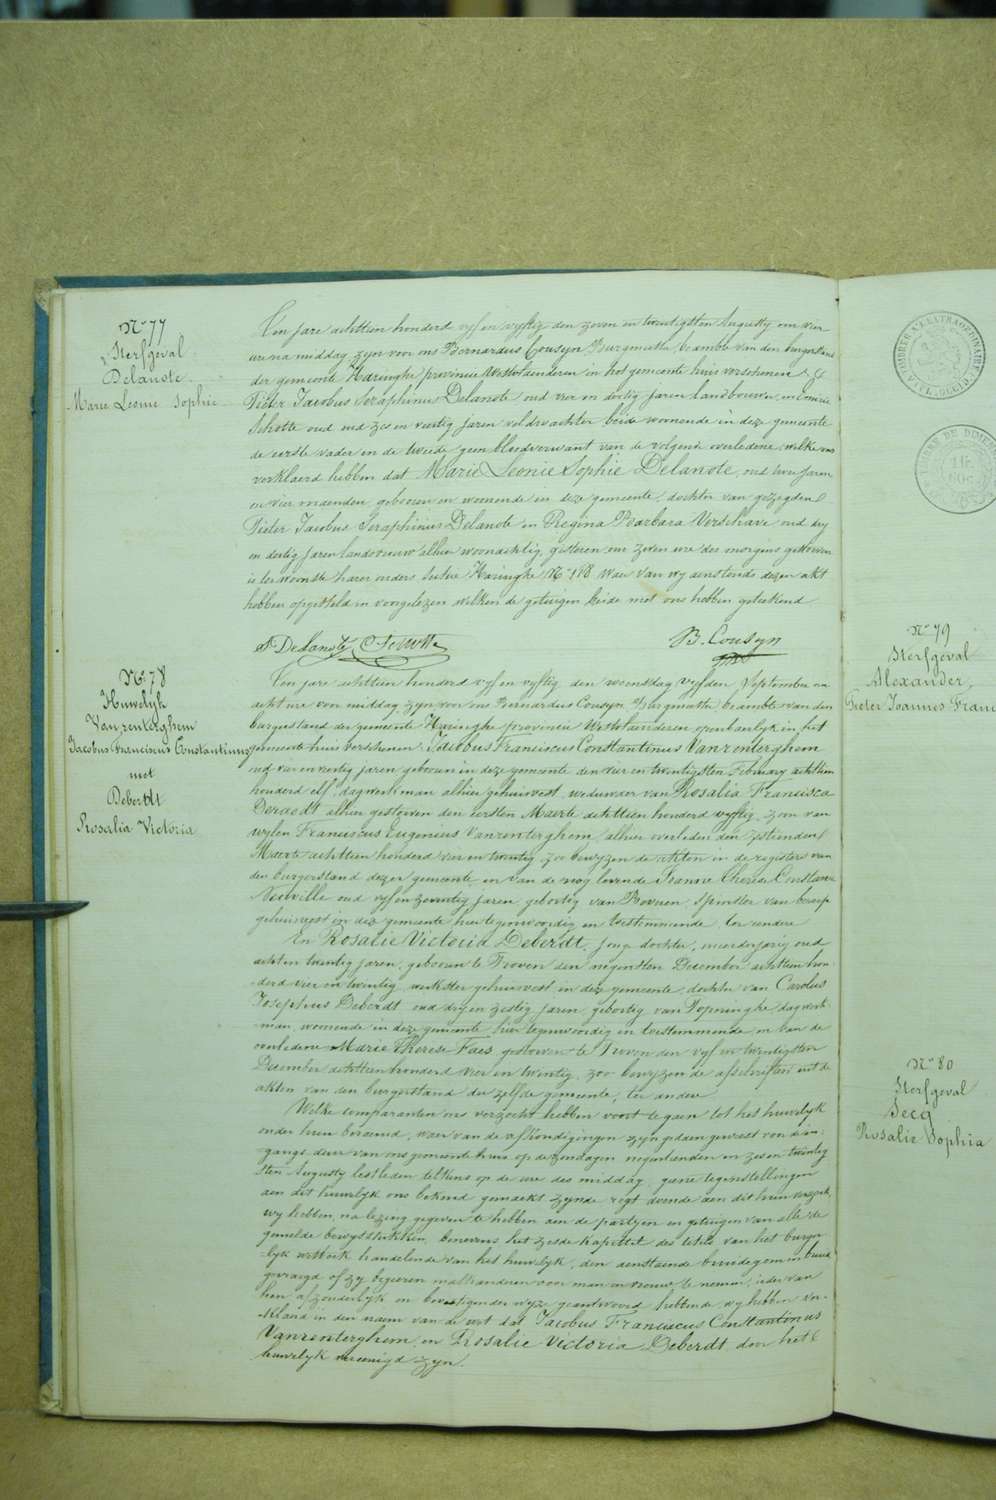 N° 77
Sterfgeval
Delanote
Marie Leonie Sophie
Ten jare achttien honderd vyf en vyftig den zeven en twintigsten Augusty om vier
ure na middag zyn voor ons Bernardus Cousyn Burgmeester, beambte van den burgerstand
der gemeente Haringhe provincie Westvlaenderen in het gemeente huis verschenen
Pieter Jacobus Seraphinus Delanote oud vier en dertig jaren landbouwer, en
Schotte oud zes en veertig jaren veldwachter beide woonende in deze gemeente
de eerste vader en de tweede geen bloedverwant van de volgende overledene, welke ons
verklaerd hebben dat Marie Leonie Sophie Delanote, oud twee jaren
en vier maenden geboren en woonende in deze gemeente, dochter van gezegden
Pieter Jacobus Seraphinus Delanote en Regina Barbara Verschave oud dry
en dertig jaren landbouw alhier woonachtig, gisteren om zeven ure des morgens gestorven
is ter woonste harer ouders sectie Haringhe N° 118 Waer van wy aenstonds dezen akt
hebben opgesteld en voorgelezen welken de getuigen beide met ons hebben geteekend
P. Delanote C. Schotte B. Cousyn
N° 78
Huwelijk
Vanrenterghem
Jacobus Franciscus Constantinus
met
Deberdt
Rosalia Victoria
Ten jare achttien honderd vyf en vyftig den woensdag vyfden September om
acht ure voor middag zyn voor ons Bernardus Cousyn Burgmeester beambte van den
burgerstand der gemeente Haringhe provincie Westvlaenderen openbaerlyk in het
gemeente huis verschenen Jacobus Franciscus Constantinus Vanrenterghem
oud vier en veertig jaren geboren in deze gemeente den vier en twintigsten February achttien
honderd elf, dagwerkman alhier gehuisvest, weduwaer van Rosalia Francisca
Deraedt alhier gestorven den eersten Maerte achttien honderd vyftig, zoon van
wylen Franciscus Eugenius Vanrenterghem, alhier overleden den zestienden
Maerte achttien honderd vier en twintig, zoo bewyzen de akten in de registers van
den burgerstand dezer gemeente en van de nog levende Fransie Therese Constance
Neuville oud vyf en zeventig jaren geboortig van Rovnen, spinster van beroep
gehuisvest in deze gemeente hier tegenwoordig en toestemmende, ter eendere
En Rosalie Victoria Deberdt, jonge dochter, meerderjarig oud
acht en twintig jaren, geboren te Proven den negensten December achttien hon-
derd vier en twintig, werkster gehuisvest in deze gemeente, dochter van Carolus
Josephus Deberdt oud dry en zestig jaren geboortig van Poperinghe dagwerk-
man, woonende in deze gemeente hier tegenwoordig en toestemmende en van de
overledene Marie Therese Faes gestorven te Proven den vyf en twintigsten
December achttien honderd vier en twintig, zoo bewyzen de afschriften uit de
akten van den burgerstand der zelfde gemeente, ter andere
Welke comparanten ons verzocht hebben voort te gaen tot het huwelyk
onder hun beraemd, waer van de afkondigingen zyn gedaen geweest voor d'in-
gangs deur van ons gemeente huis op de zondagen negentienden en zes en twintig
sten Augusty lestleden telkens op de ure des middag, geene tegenstellingen
aen dit huwelyk ons bekend gemaekt zynde regt doende aen dit hun verzoek,
wy hebben, na lezing gegeven te hebben aen de partyen en getuigen van alle de
gemelde bewysstukken, benevens het zesde kapittel des titels van het burger
lyk wetboek handelende van het huwelyk, den aenstaende bruidegom en bruid
gevraegd of zy begeeren malkanderen voor man en vrouw te nemen, ieder van
hen afzonderlyk en bevestigender wyze geantwoord hebbende, wy hebben ver-
klaerd in den naem van de wet dat Jacobus Franciscus Constantinus
Vanrenterghem en Rosalie Victoria Deberdt door het
huwelyk vereenigd zyn.
TIMBRE A L'EXTRAORDINAIRE
FL. OCCID.
N° 79
Sterfgeval
Alexander
Pieter Joannes Franc
N° 80
Sterfgeval
Secq
Rosalie Sophia